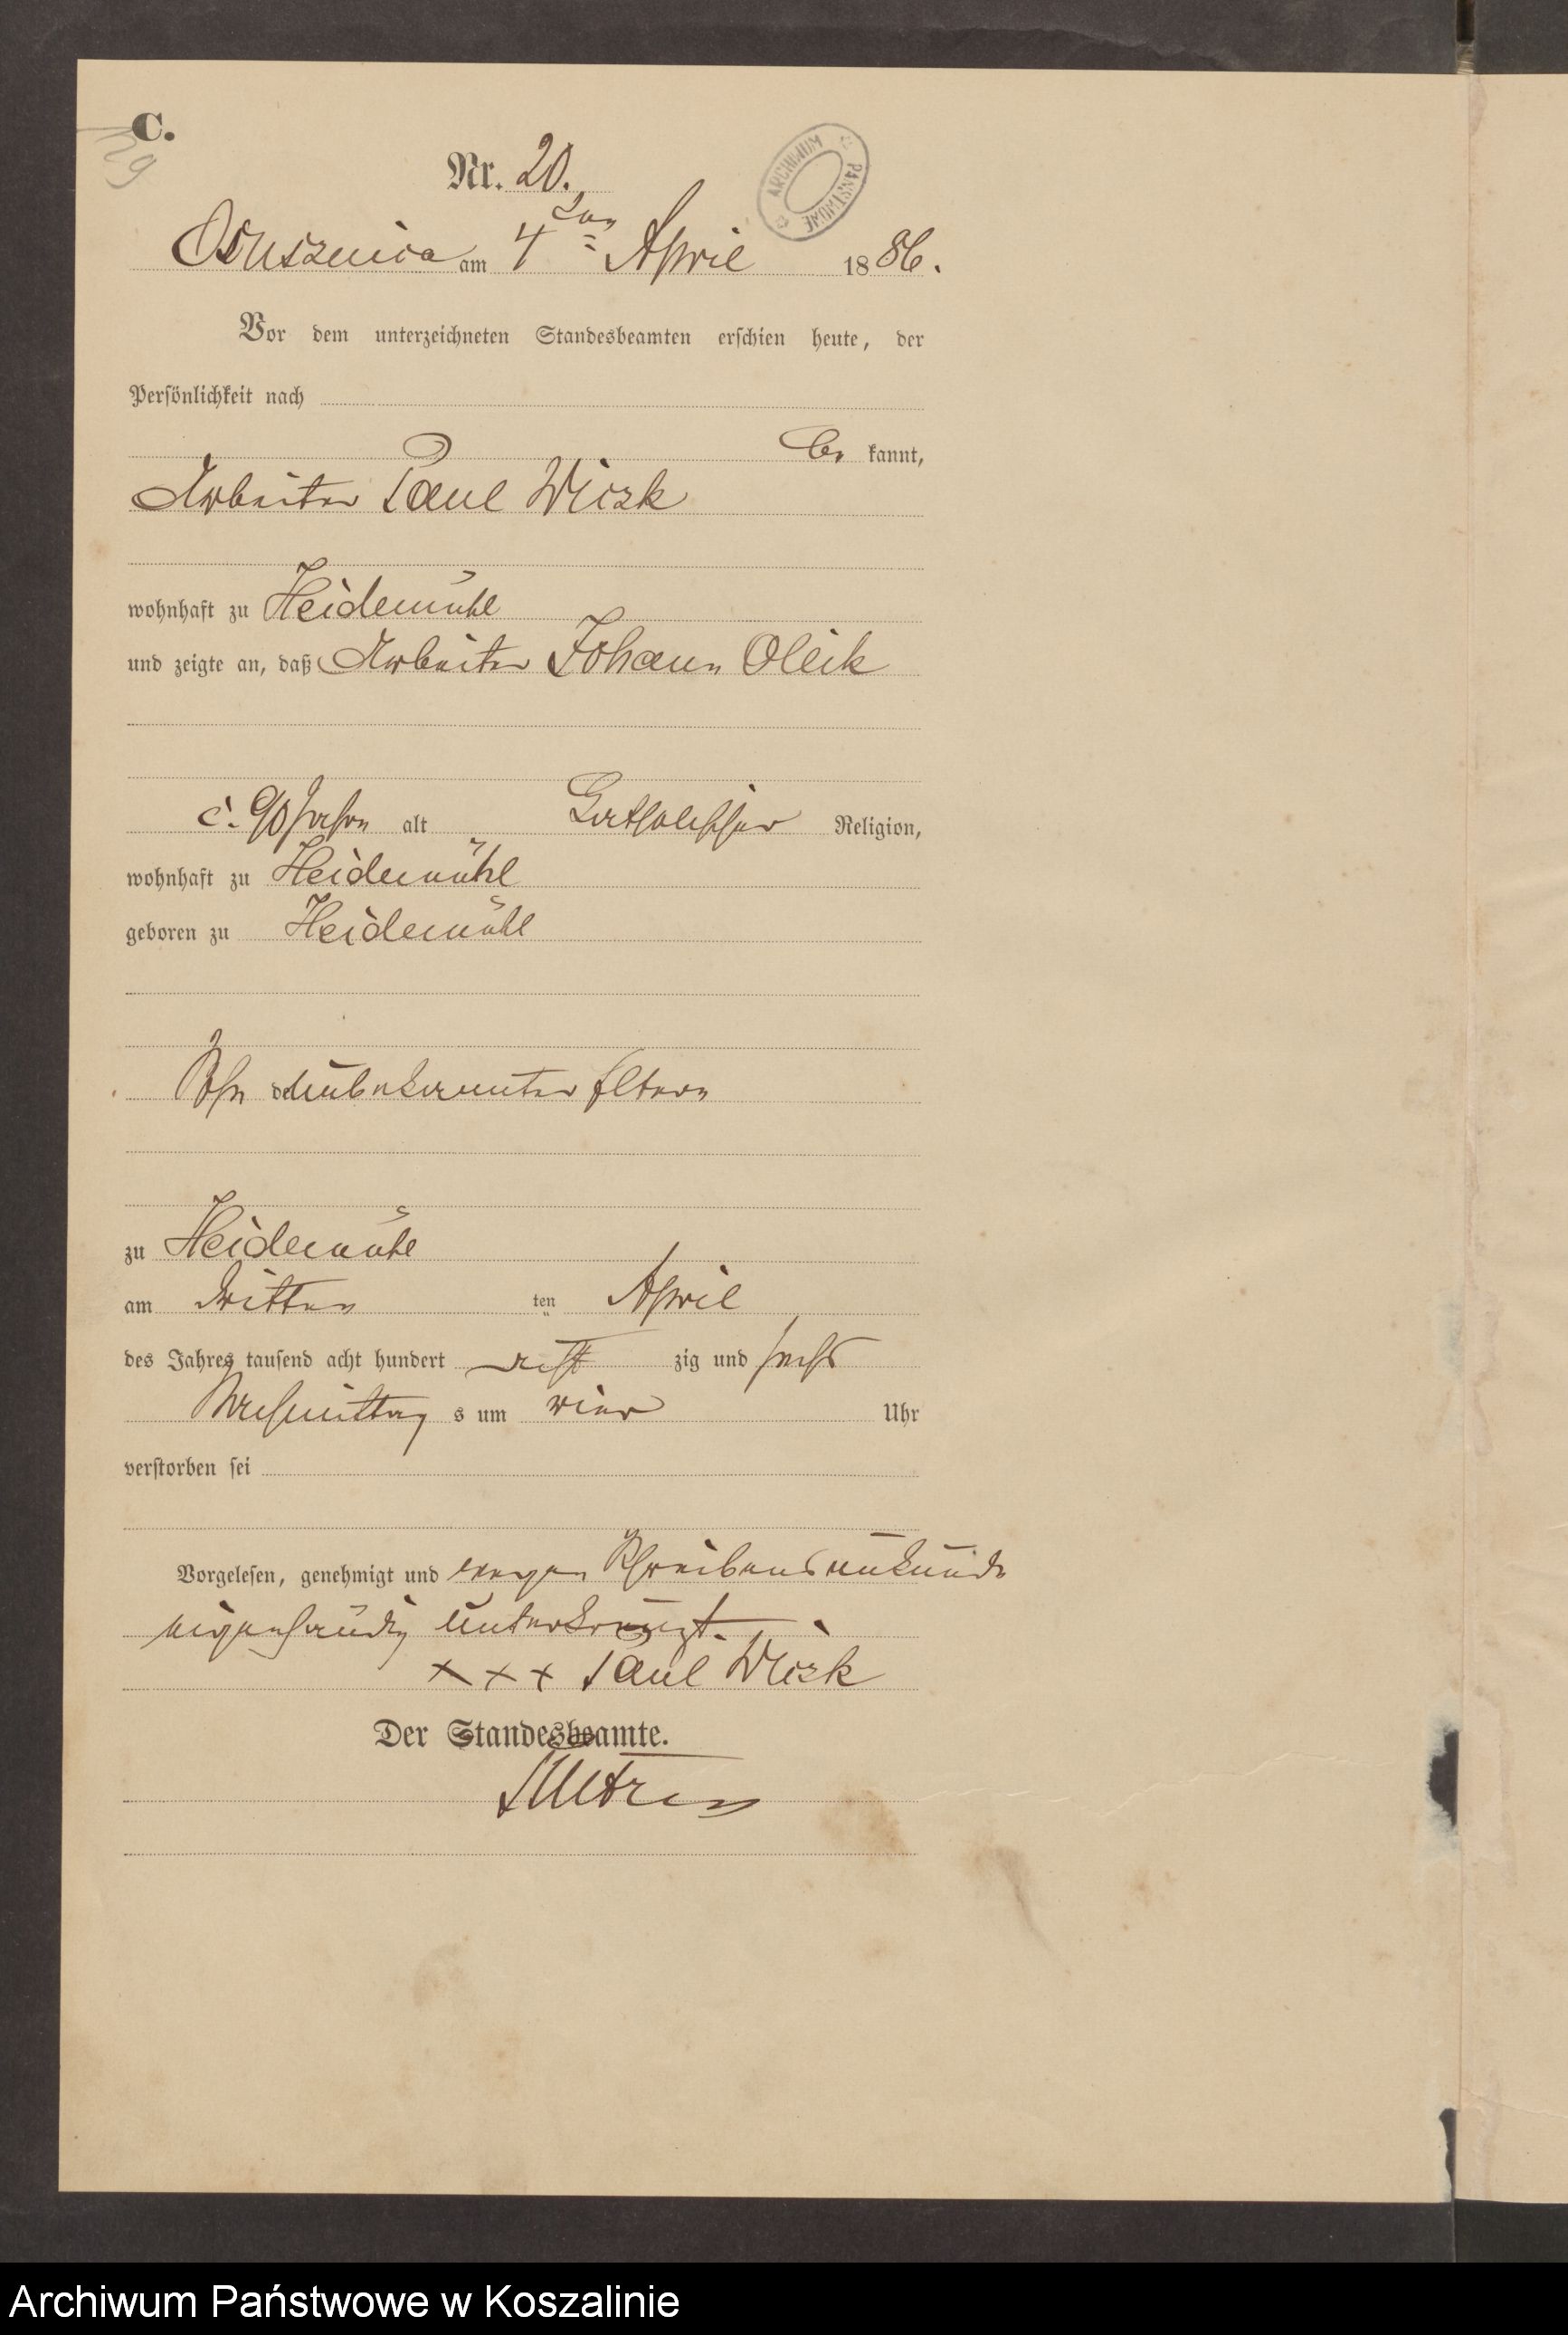 C.
29
Nr. 20.
ARCHIWUM PAŃSTWOWE
Ossusznica am 4ten April 1886.
Vor dem unterzeichneten Standesbeamten erschien heute, der
Persönlichkeit nach
be kannt,
Arbeiter Paul Wirsk
wohnhaft zu Heidemühl
und zeigte an, daß Arbeiter Johann Oleik
c. 90 Jahre alt Catholischer Religion,
wohnhaft zu Heidemühl
geboren zu Heidemühl
Sohn unbekannter Eltern
zu Heidemühl
am dritten ten April
des Jahres tausend acht hundert acht zig und sechs
Nachmittag s um vier Uhr
verstorben sei
Vorgelesen, genehmigt und wegen Schreibensunkunde
eigenhändig unterkreuzt.
+ + + Paul Wirsk
Der Standesbeamte.
Archiwum Państwowe w Koszalinie